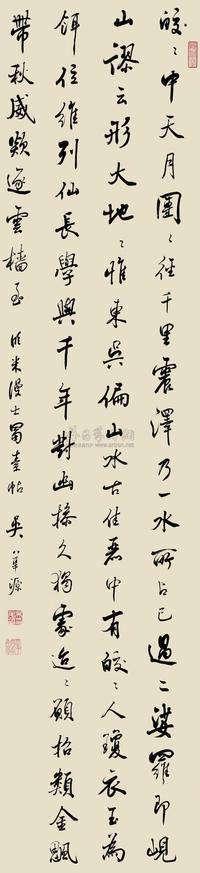 皎〻中天月團〻徑千里震澤乃一水所占已過二娑羅即峴
山謬云形大地〻惟東吳偏山水古佳麗中有皎〻人瓊衣玉為
餌位維列仙長學與千年對幽操久獨處迢〻願招類金飆
帶秋威欻逐雲檣至 臨米漫士蜀素帖 吳華源